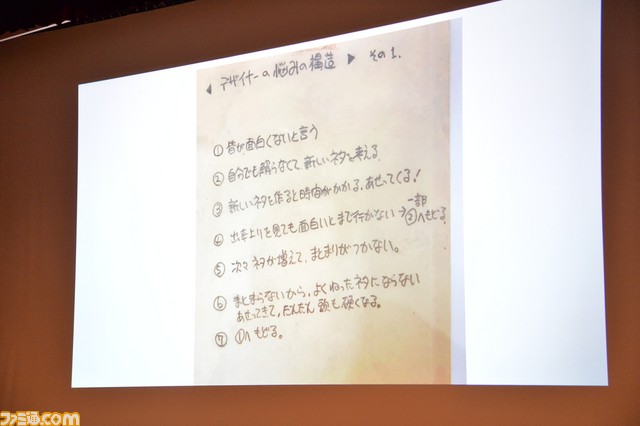 ◀ デザイナーの悩みの構造 ▶ その1.
① 皆が面白くないと言う
② 自分でも解らなくて新しいネタを考える
③ 新しいネタを作ると時間がかかる、あせってくる!
④ 出来上りを見ても面白いとまで行かない→一部②へもどる
⑤ 次々ネタが増えて、まとまりがつかない。
⑥ まとまらないから、よくねったネタにならない
あせってきて、だんだん頭も硬くなる。
⑦ ①へもどる。
ファミ通.com